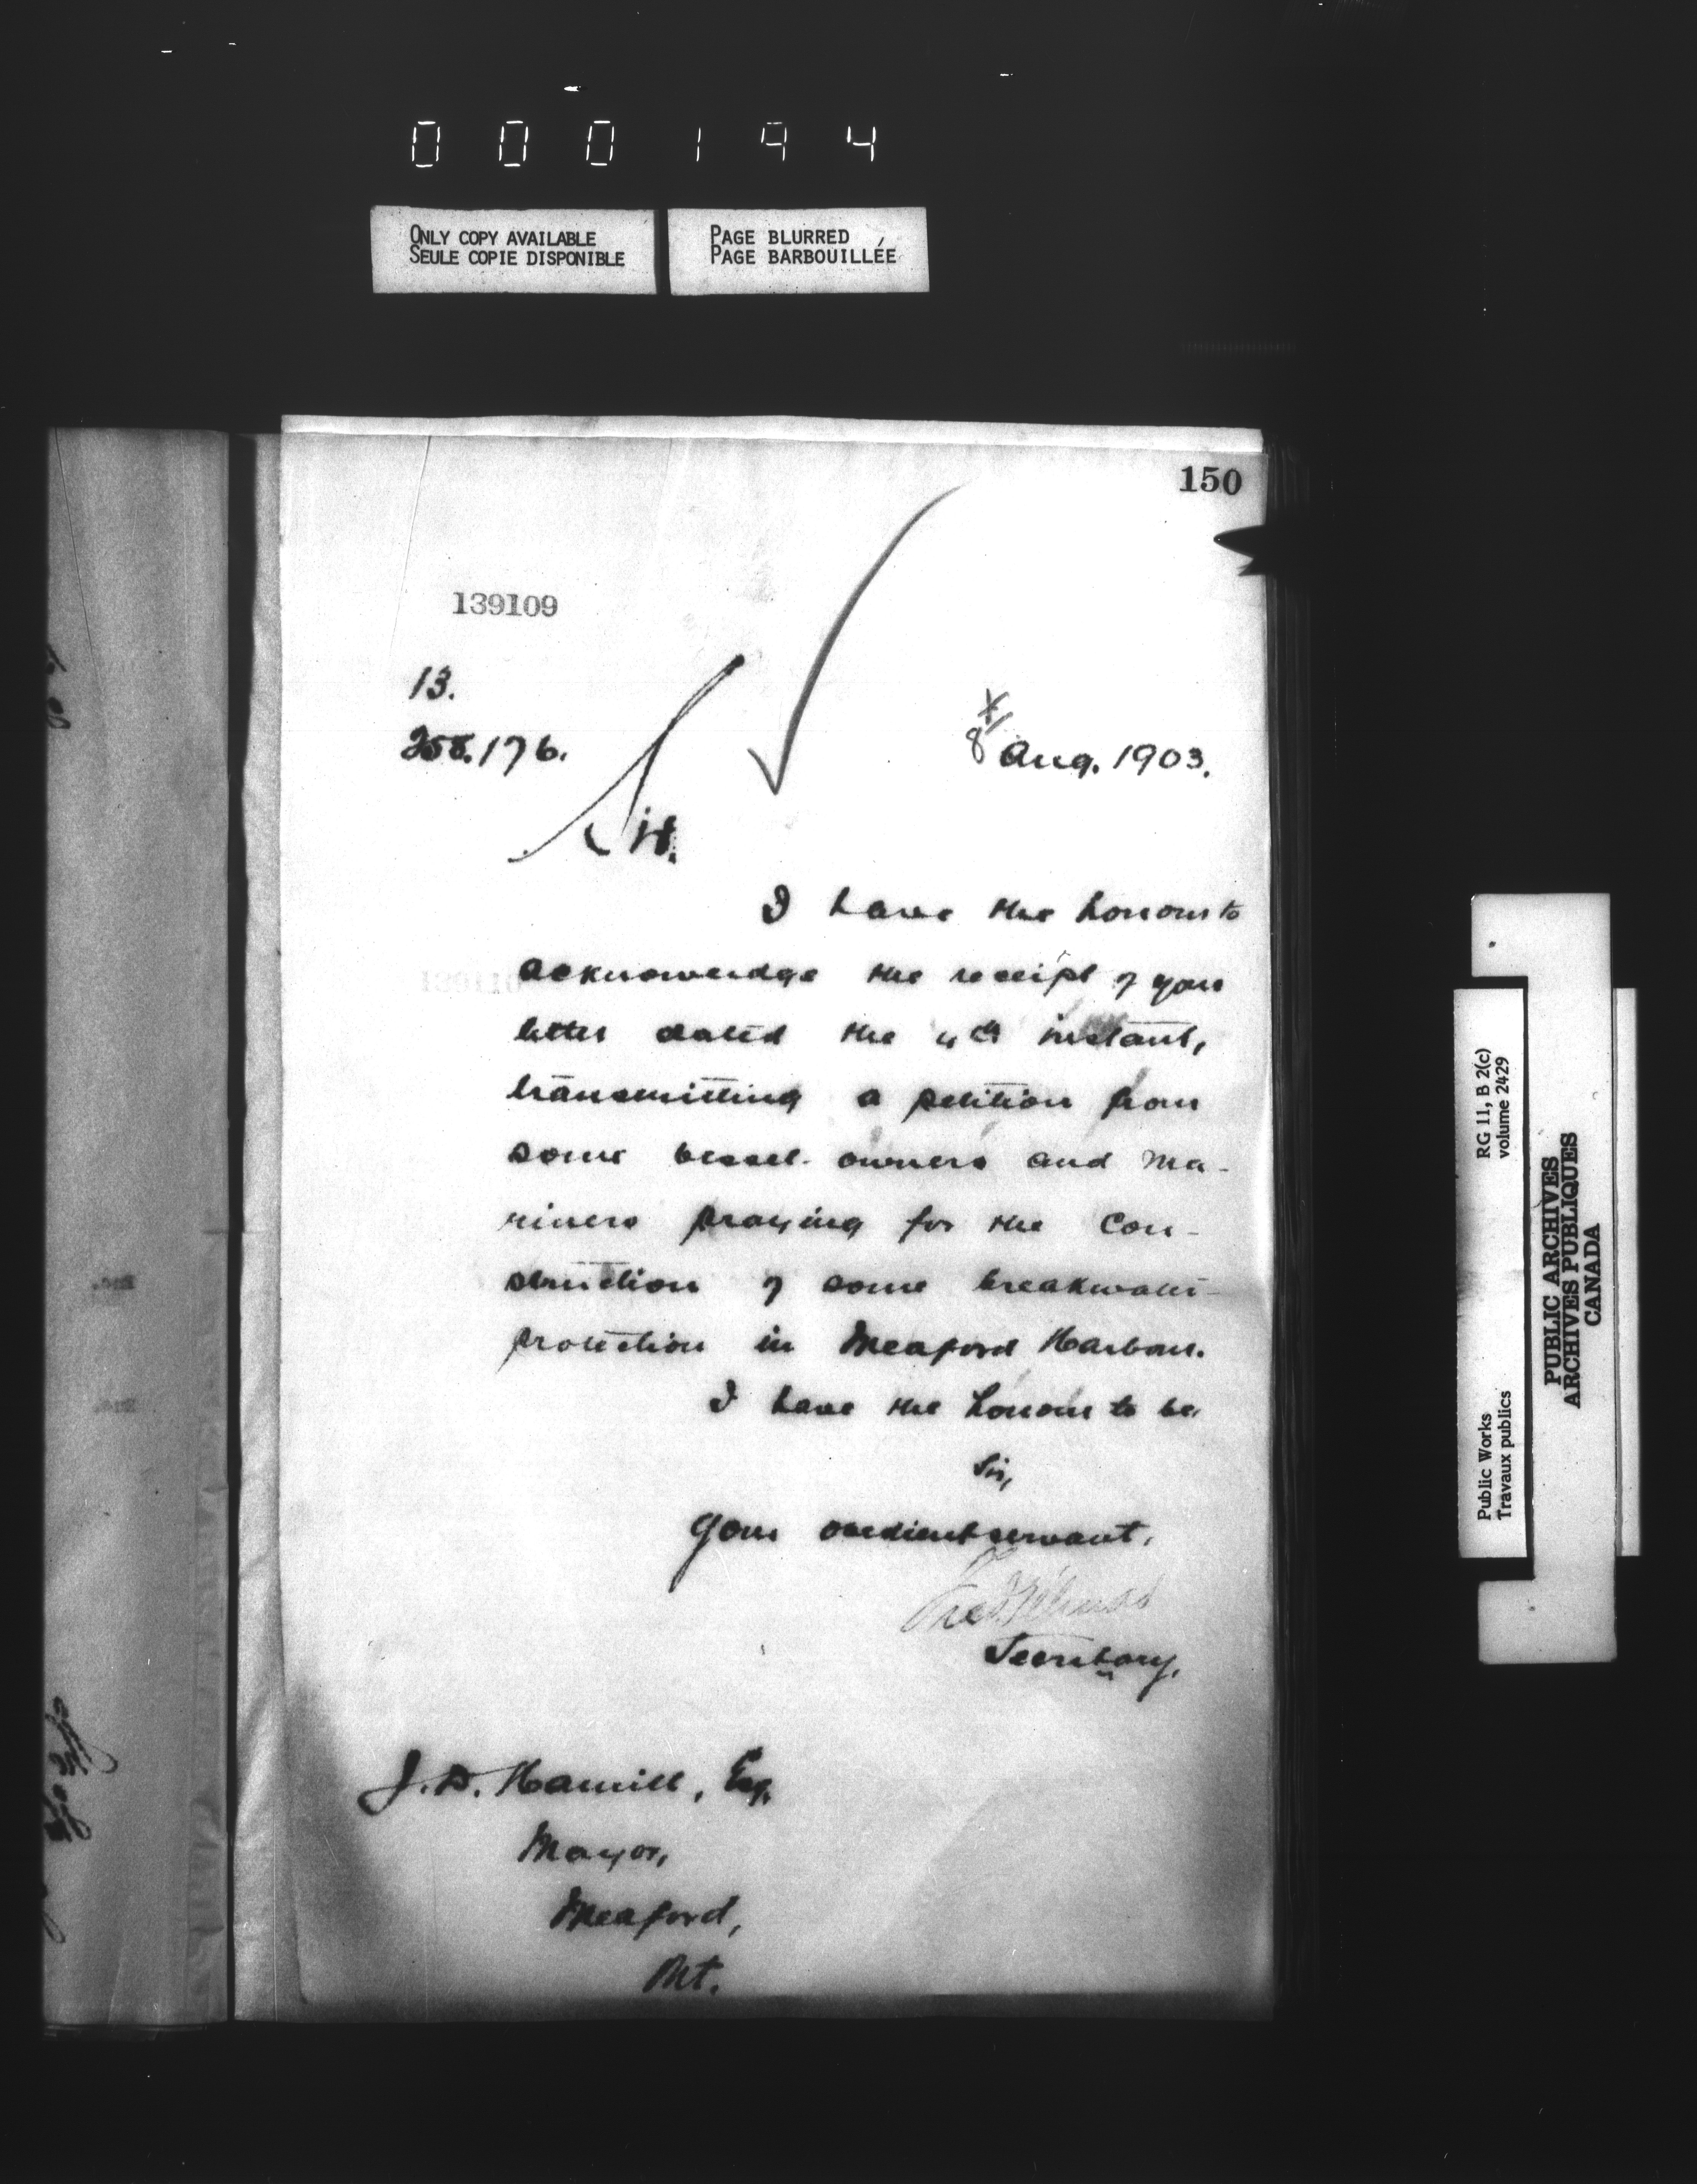 000194
ONLY COPY AVAILABLE
SEULE COPIE DISPONIBLE
PAGE BLURRED
PAGE BARBOUILLÉE
150
139109
13.
176.
8 Aug. 1903.
H.
I have the honour to
acknowledge the receipt of your
letter dated the 4th instant,
transmitting a petition from
some vessel-owners and ma-
riners praying for the con-
struction of some breakwater-
protection in Meaford Harbour.
I have the honour to be,
Sir,
Your obedient servant,
Secretary.
J. D. Hamill, Esq.
Mayor,
Meaford,
Ont.
Public Works
Travaux publics
RG 11, B 2(c)
volume 2429
PUBLIC ARCHIVES
ARCHIVES PUBLIQUES
CANADA